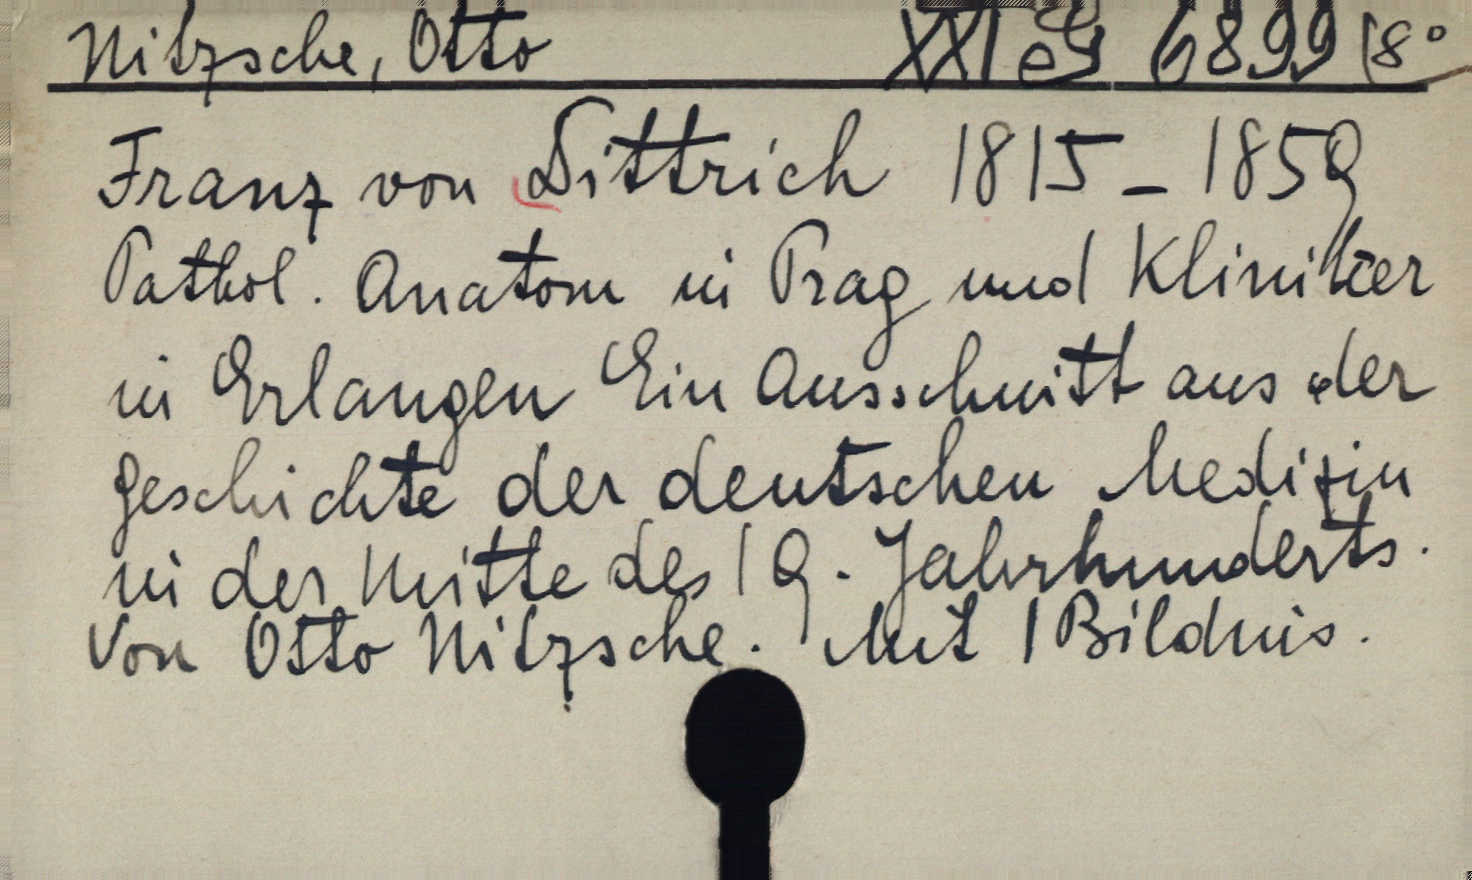 Nitzsche, Otto XXI 6899 8°
Franz von Dittrich 1815 – 1859
Pathol. Anatom in Prag und Kliniker
in Erlangen Ein Ausschnitt aus der
Geschichte der deutschen Medizin
in der Mitte des 19. Jahrhunderts.
Von Otto Nitzsche. Mit 1 Bildnis.